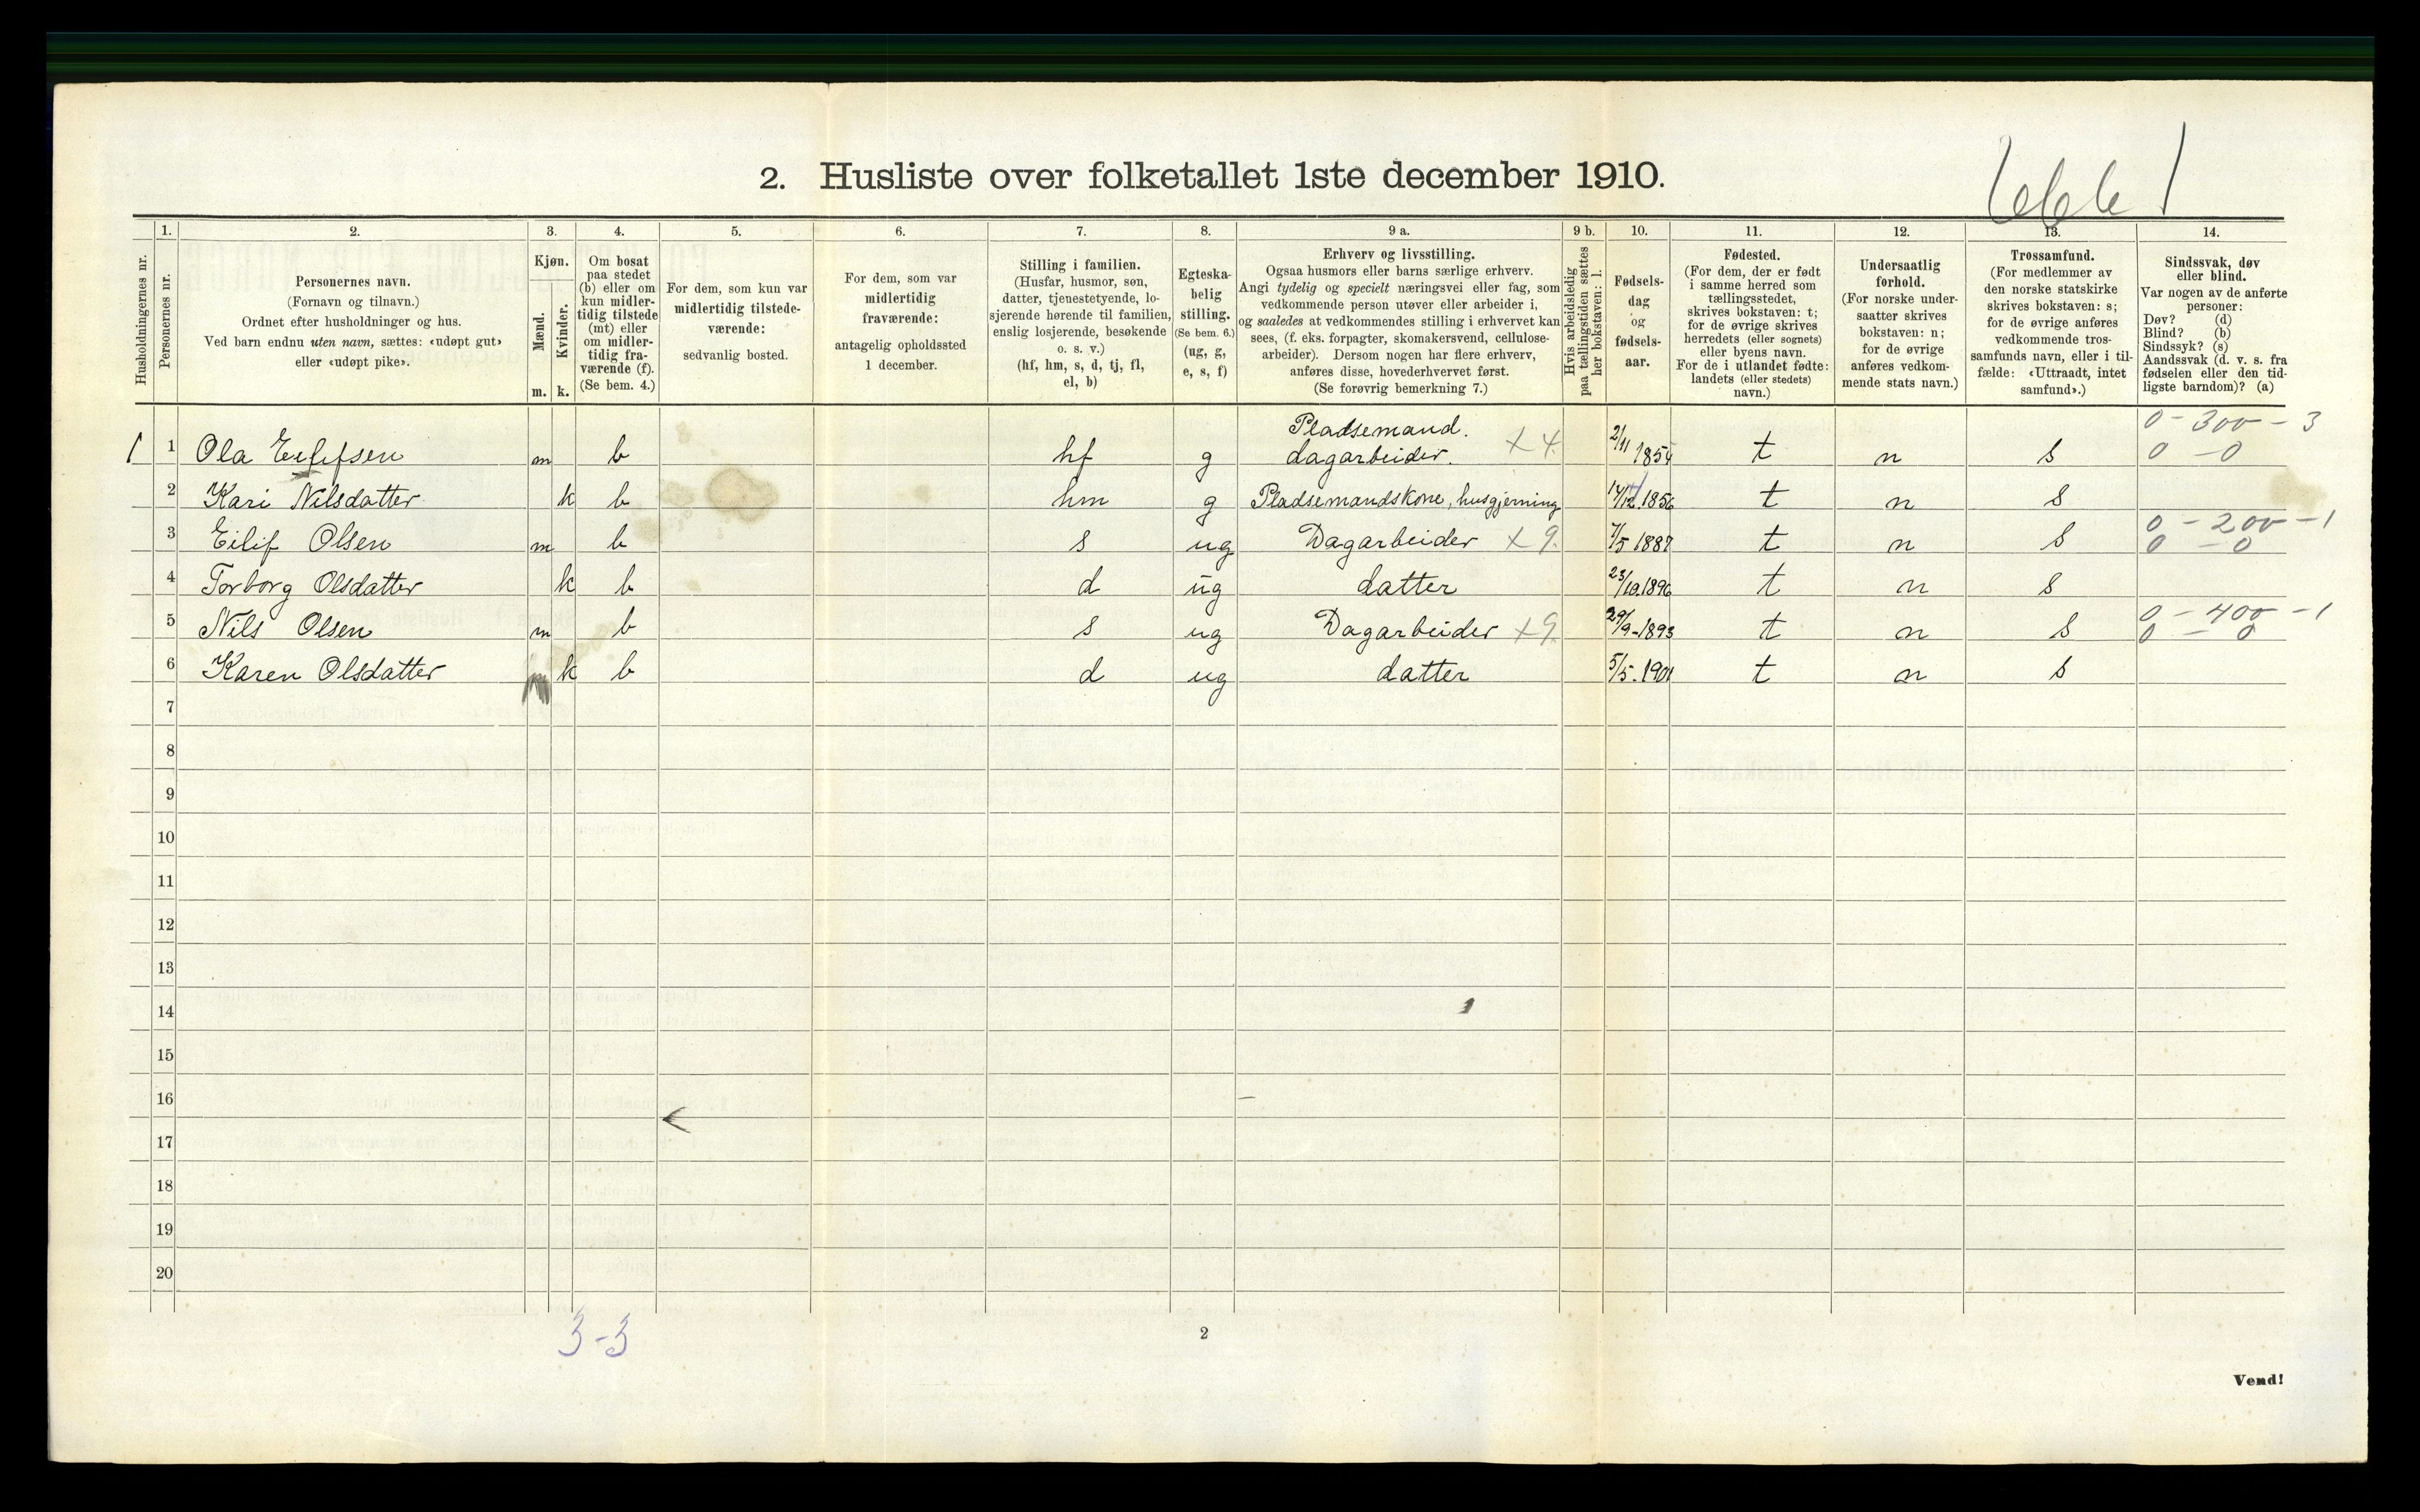 2. Husliste over folketallet 1ste december 1910.
1. 2. 3. 4. 5. 6. 7. 8. 9 a. 9 b. 10. 11. 12. 13. 14.
Husholdningernes nr.
Personernes nr.
Personernes navn.
(Fornavn og tilnavn.)
Ordnet efter husholdninger og hus.
Ved barn endnu uten navn, sættes: «udøpt gut»
eller «udøpt pike».
Kjøn.
Mænd.
Kvinder.
m. k.
Om bosat
paa stedet
(b) eller om
kun midler-
tidig tilstede
(mt) eller
om midler-
tidig fra-
værende (f).
(Se bem. 4.)
For dem, som kun var
midlertidig tilstede-
værende:
sedvanlig bosted.
For dem, som var
midlertidig
fraværende:
antagelig opholdssted
1 december.
Stilling i familien.
(Husfar, husmor, søn,
datter, tjenestetyende, lo-
sjerende hørende til familien,
enslig losjerende, besøkende
o. s. v.)
(hf, hm, s, d, tj, fl,
el, b)
Egteska-
belig
stilling.
(Se bem. 6.)
(ug, g,
e, s, f)
Erhverv og livsstilling.
Ogsaa husmors eller barns særlige erhverv.
Angi tydelig og specielt næringsvei eller fag, som
vedkommende person utøver eller arbeider i,
og saaledes at vedkommendes stilling i erhvervet kan
sees, (f. eks. forpagter, skomakersvend, cellulose-
arbeider). Dersom nogen har flere erhverv,
anføres disse, hovederhvervet først.
(Se forøvrig bemerkning 7.)
Hvis arbeidsledig
paa tællingstiden sættes
her bokstaven: l.
Fødsels-
dag
og
fødsels-
aar.
Fødested.
(For dem, der er født
i samme herred som
tællingsstedet,
skrives bokstaven: t;
for de øvrige skrives
herredets (eller sognets)
eller byens navn.
For de i utlandet fødte:
landets (eller stedets)
navn.)
Undersaatlig
forhold.
(For norske under-
saatter skrives
bokstaven: n;
for de øvrige
anføres vedkom-
mende stats navn.)
Trossamfund.
(For medlemmer av
den norske statskirke
skrives bokstaven: s;
for de øvrige anføres
vedkommende tros-
samfunds navn, eller i til-
fælde: «Uttraadt, intet
samfund».)
Sindssvak, døv
eller blind.
Var nogen av de anførte
personer:
Døv? (d)
Blind? (b)
Sindssyk? (s)
Aandssvak (d. v. s. fra
fødselen eller den tid-
ligste barndom)? (a)
Pladsemand. 0 - 300 - 3
1 1 Ola Eilifsen m b hf g dagarbeider. x 4. 2/11 1854 t n s 0 - 0
2 Kari Nilsdatter k b hm g Pladsemandskone, husgjerning 14/12.1856 t n s
0 - 200 - 1
3 Eilif Olsen m b s ug Dagarbeider x 9. 7/5 1887 t n s 0 - 0
4 Torborg Olsdatter k b d ug datter 23/10.1896 t n s
0 - 400 - 1
5 Nils Olsen m b s ug Dagarbeider x 9. 29/9-1893 t n s 0 - 0
6 Karen Olsdatter k b d ug datter 5/5.1901 t n s
7
8
9
10
11
12
13
14
15
16
17
18
19
20
3-3
2
Vend!